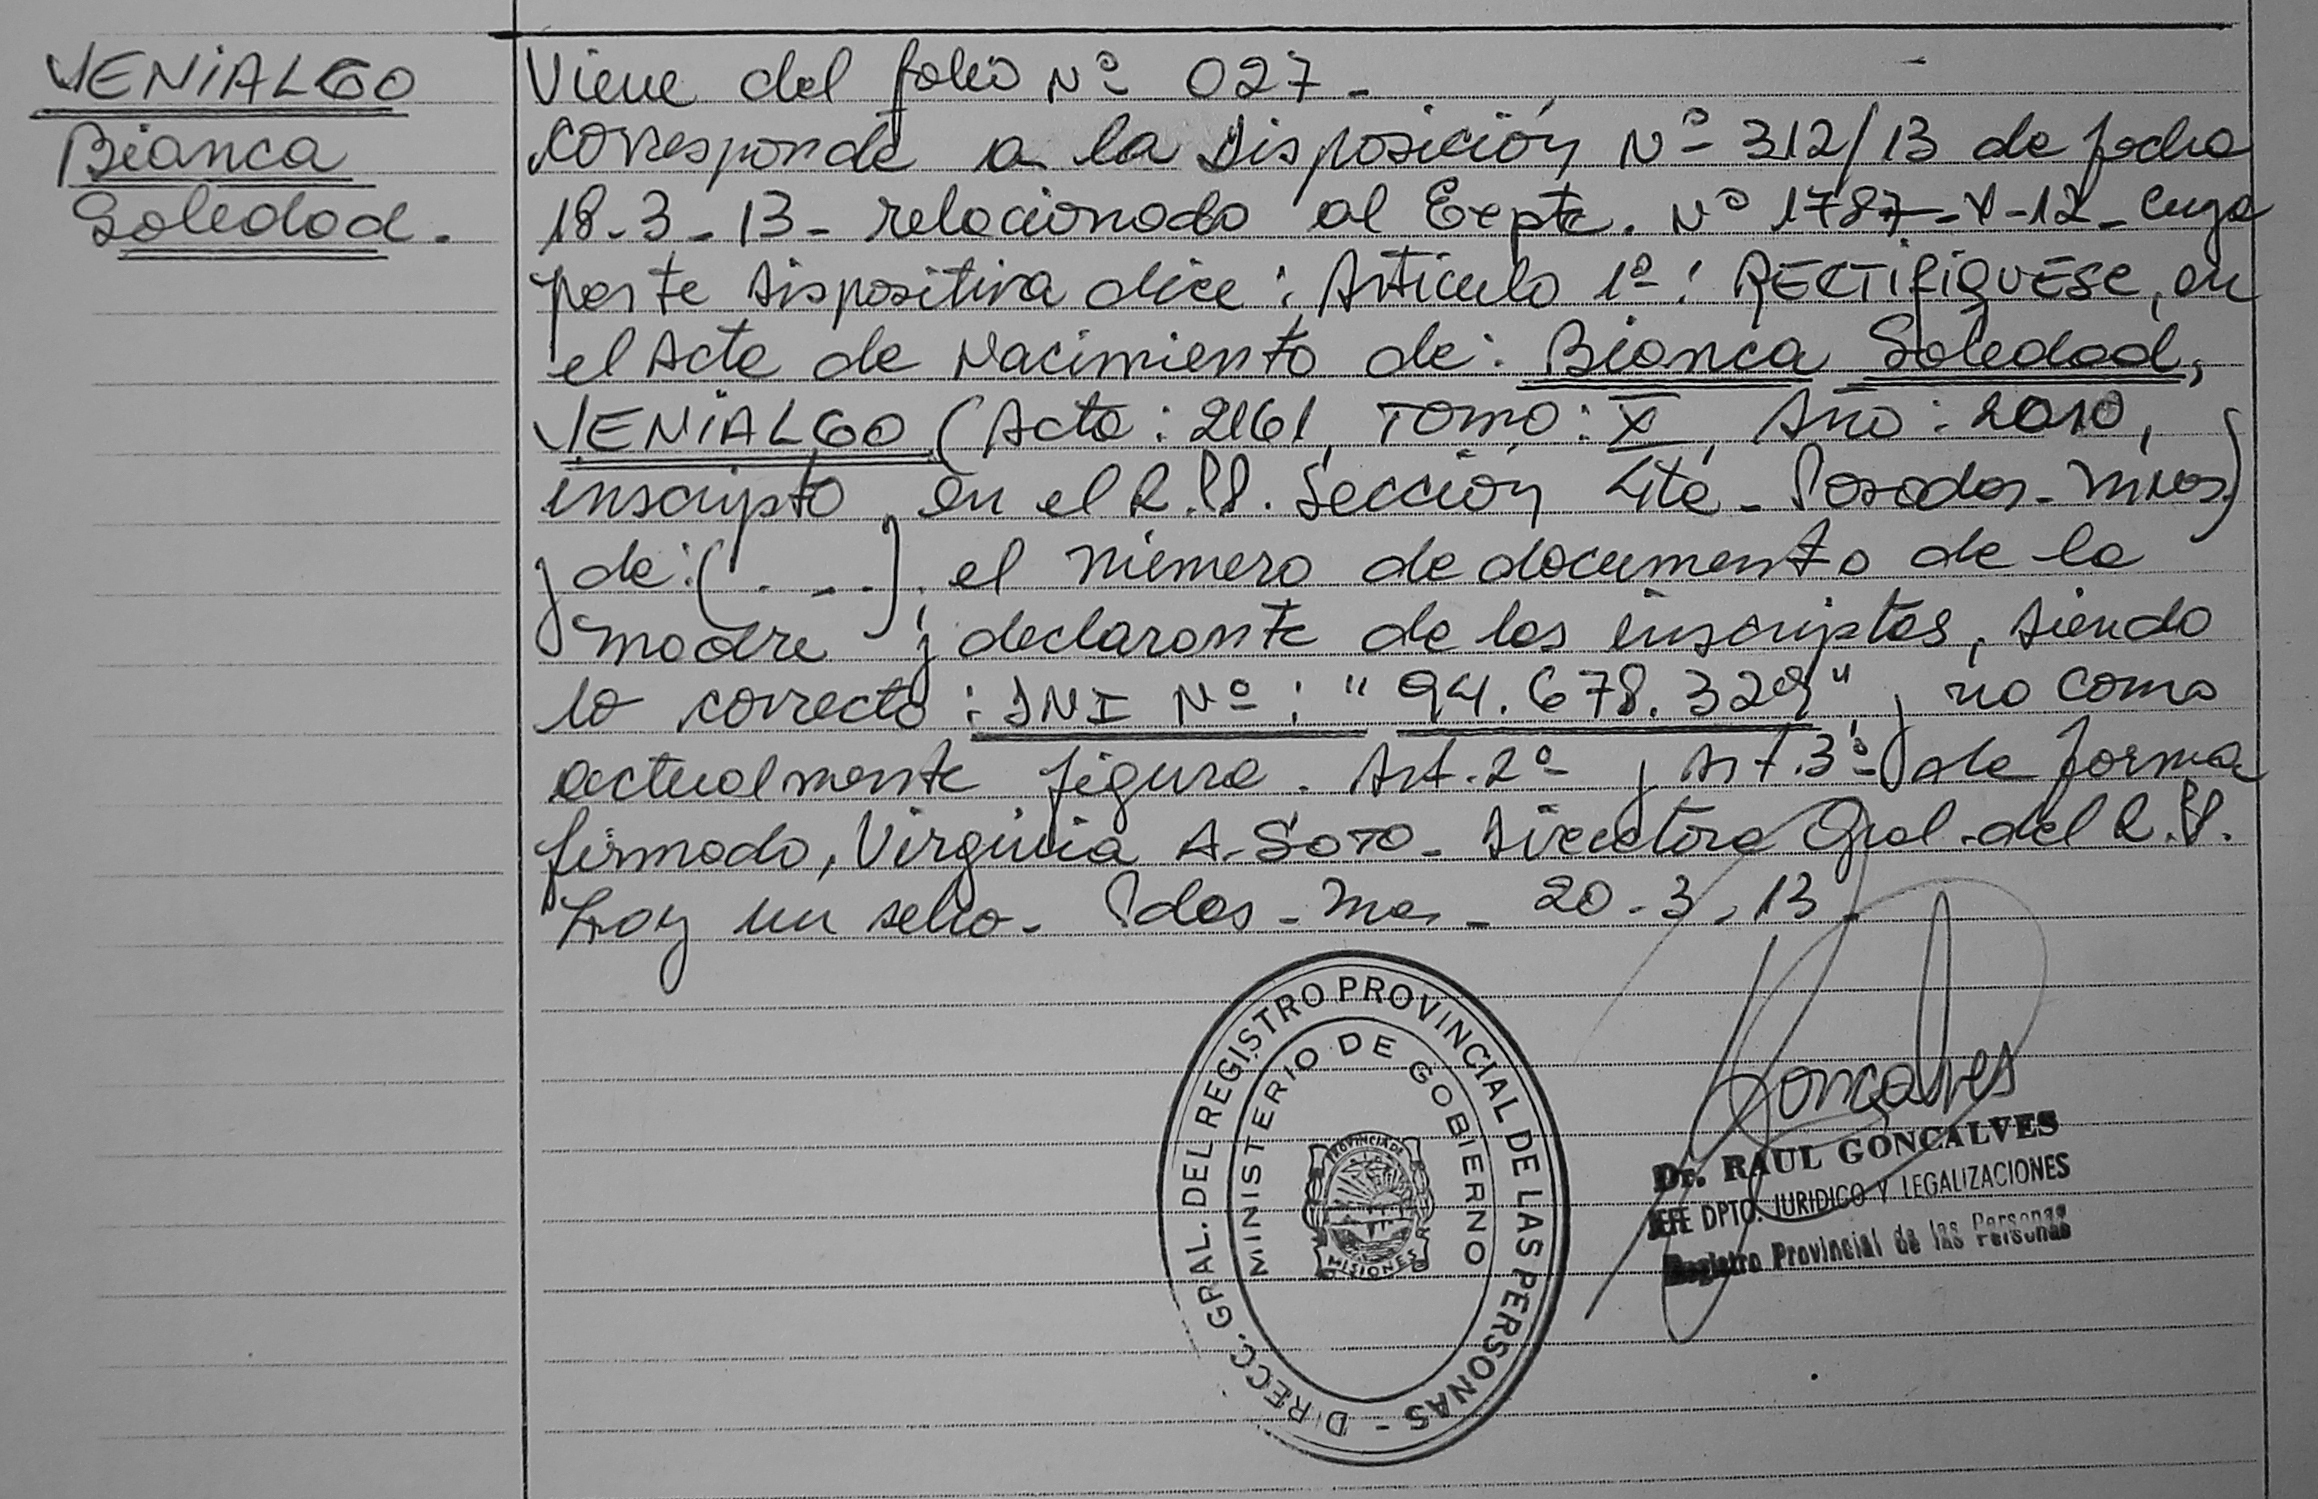 VENIALGO
Bianca
Soledad.
Viene del folio Nº 027-
corresponde a la Disposición Nº 312/13 de fecha
18-3-13- relacionado al Expte. Nº 1787-V-12- cuya
parte dispositiva dice: Articulo 1º: RECTIFIQUESE, en
el Acta de Nacimiento de: Bianca Soledad,
VENIALGO (Acta: 2161, TOMO: X, Año: 2010,
inscripto en el R.P.P. Sección 4ta - Posadas - Mnes)
y de: (. - - .), el número de documento de la
madre y declarante de los inscriptos, siendo
lo correcto: DNI Nº: "94.678.329", y no como
actualmente figura. Art. 2º y Art. 3º de forma
firmado, Virginia A. SOTO - Directora Gral. del R.P.P.
Hay un sello. Pdas - Mnes - 20-3-13-
DIRECC. GRAL. DEL REGISTRO PROVINCIAL DE LAS PERSONAS -
MINISTERIO DE GOBIERNO
PROVINCIA DE
MISIONES
Goncalves
Dr. RAUL GONCALVES
JEFE DPTO. JURIDICO Y LEGALIZACIONES
Registro Provincial de las Personas